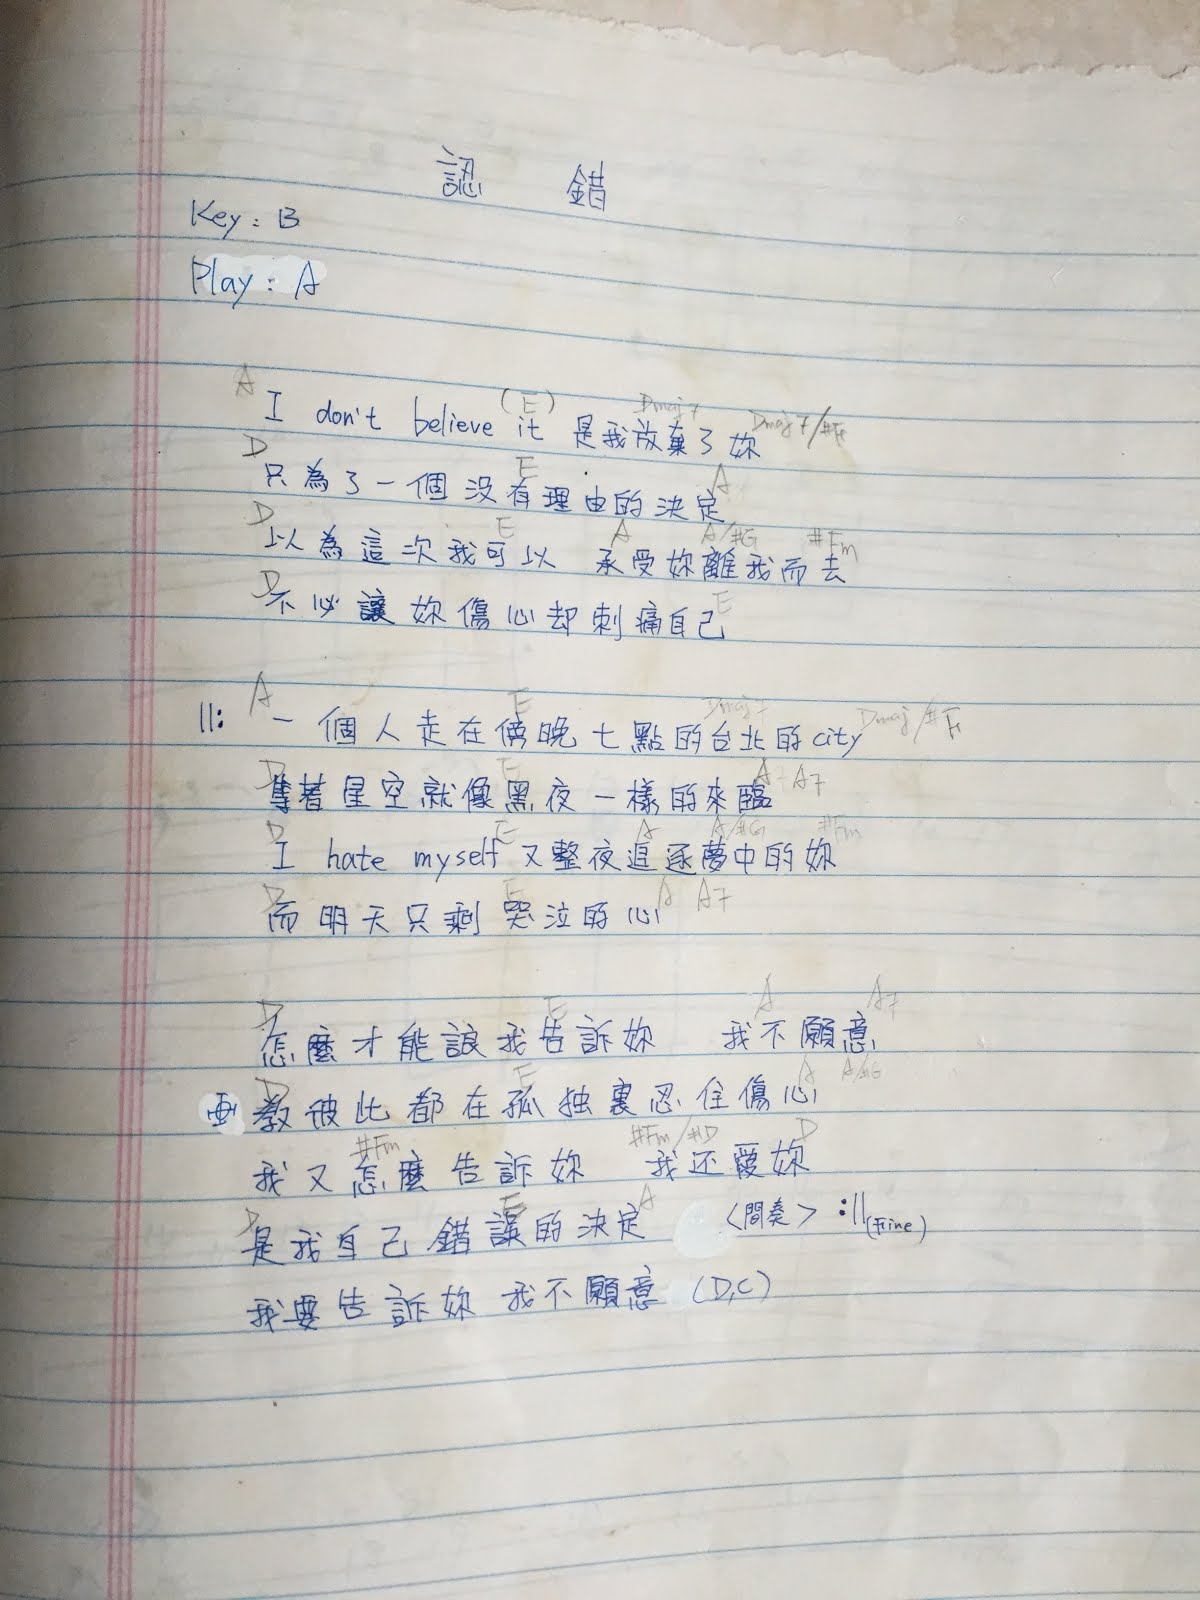 認 錯
Key: B
Play: A
A (E) Dmaj7 Dmaj7/#F
I don't believe it 是我放棄了妳
D E A
只為了一個沒有理由的決定
D E A A/#G #Fm
以為這次我可以 承受妳離我而去
D E
不必讓妳傷心却刺痛自己
A E Dmaj7 Dmaj/#F
||: 一個人走在傍晚七點的台北的city
D E A A7
等著星空就像黑夜一樣的來臨
D E A A/#G #Fm
I hate myself 又整夜追逐夢中的妳
D E A A7
而明天只剩哭泣的心
D E A A7
怎麼才能讓我告訴妳 我不願意
D E A A/#G
教彼此都在孤独裏忍住傷心
#Fm #Fm/#D D
我又怎麼告訴妳 我还愛妳
D E A
是我自己錯誤的決定 <間奏> :|| (Fine)
我要告訴妳 我不願意 (D,C)